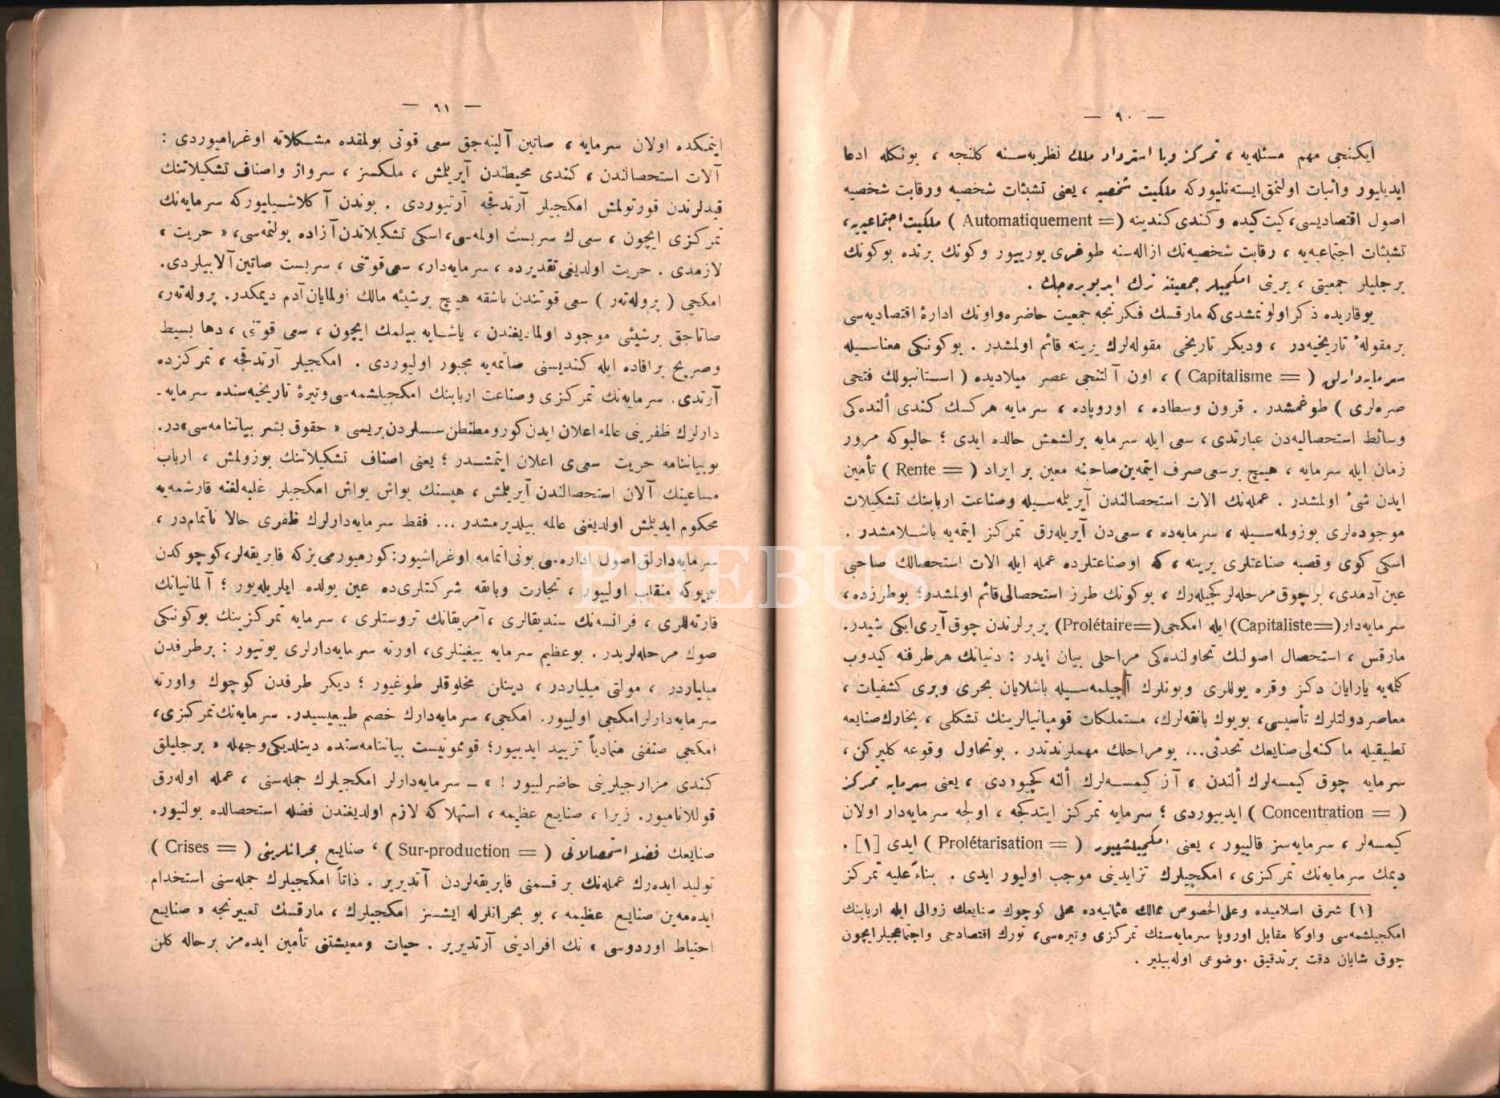 — ٩٠ —
ايكنجى مهم مسئله‌يه ، تمركز ويا استرداد ملك نظريه‌سنه كلنجه ، بونكله ادعا
ايديليور واثبات اولنمق ايسته‌نليوركه ملكيت شخصيه ، يعنى تشبثات شخصيه ورقابت شخصيه
اصول اقتصاديسى، كيت كيده وكندى كندينه (= Automatiquement ) ملكيت اجتماعيه‌يه،
تشبثات اجتماعيه‌يه ، رقابت شخصيه‌نك ازاله‌سنه طوغرى يورييور وكونك برنده بوكونك
برجليلر جمعيتى ، يرينى امكجيلر جمعيتنه ترك ايديويره‌جك .
يوقاريده ذكر اولونمشدى كه مارقسك فكرنجه جمعيت حاضره واونك ادارهٔ اقتصاديه‌سى
برمقولهٔ تاريخيه‌در ، وديكر تاريخى مقوله‌لرك يرينه قائم اولمشدر . بوكونكى معناسيله
سرمايه‌دارلق ( = Capitalisme ) ، اون آلتنجى عصر ميلاديده ( استانبولك فتحى
صره‌لرى ) طوغمشدر . قرون وسطاده ، اوروپاده ، سرمايه هركسك كندى ألنده‌كى
وسائط استحصاليه‌دن عبارتدى ، سعى ايله سرمايه برلشمش حالده ايدى ؛ حالبوكه مرور
زمان ايله سرمايه ، هيچ برسعى صرف ايتمه‌ين صاحبنه معين بر ايراد ( = Rente ) تأمين
ايدن شئ اولمشدر . عمله‌نك الات استحصالندن آيريلمه‌سيله وصناعت اربابنك تشكيلات
موجوده‌لرى بوزولمه‌سيله ، سرمايه‌ده ، سعى‌دن آيريله‌رق تمركز ايتمه‌يه باشلامشدر .
اسكى كوى وقصبه صناعتلرى يرينه ، كه اوصناعتلرده عمله ايله الات استحصالك صاحبى
عين آدمدى، برچوق مرحله‌لر كچيله‌رك ، بوكونك طرز استحصالى قائم اولمشدر؛ بوطرزده ،
سرمايه‌دار(=Capitaliste) ايله امكجى(=Prolétaire) بربرلرندن چوق آيرى ايكى شيدر.
مارقس ، استحصال اصولنك تحولنده‌كى مراحلى بيان ايدر : دنيانك هر طرفنه كيدوب
كلمه‌يه يارايان دكز وقره يوللرى وبونلرك آچيلمه‌سيله باشلايان بحرى وبرى كشفيات ،
معاصر دولتلرك تأسيسى، بويوك بانقه‌لرك، مستملكات قومپانيالرينك تشكلى ، بخارك صنايعه
تطبيقيله ماكنه‌لى صنايعك تحدثى... بومراحلك مهملرندندر . بوتحاول وقوعه كليركن ،
سرمايه چوق كيمسه‌لرك ألندن ، آز كيمسه‌لرك ألنه كچيوردى ، يعنى سرمايه تمركز
( = Concentration ) ايدييوردى ؛ سرمايه تمركز ايتدكجه ، اولجه سرمايه‌دار اولان
كيمسه‌لر ، سرمايه‌سز قالييور ، يعنى امكجيلشييور ( = Prolétarisation ) ايدى [١] .
ديمك سرمايه‌نك تمركزى ، امكجيلرك تزايدينى موجب اولييور ايدى . بناءً عليه تمركز
[١] شرق اسلاميده وعلى‌الخصوص ممالك عثمانيه‌ده محلى كوچوك صنايعك زوالى ايله اربابنك
امكجيلشمه‌سى واوكا مقابل اوروپا سرمايه‌سنك تمركزى وتيره‌سى، تورك اقتصادجى واجتماعجيلرايچون
چوق شايان دقت برتدقيق موضوعى اوله‌بيلير .
— ٩١ —
ايتمكده اولان سرمايه ، صاتين آلينه‌جق سعى قوتى بولمقده مشكلاته اوغراميوردى :
آلات استحصالندن ، كندى محيطندن آيريلمش ، ملكسز ، سرواژ واصناف تشكيلاتنك
قيدلرندن قورتولمش امكجيلر آرتدقجه آرتيوردى . بوندن آكلاشيليوركه سرمايه‌نك
تمركزى ايچون ، سعى‌ك سربست اولمه‌سى، اسكى تشكيلاتدن آزاده بولنمه‌سى، « حريت »
لازمدى . حريت اولدينى تقديرده ، سرمايه‌دار، سعى قوتنى ، سربست صاتين آلابيلردى.
امكجى ( پرولته‌ر ) سعى قوتندن باشقه هيچ برشيئه مالك اولمايان آدم ديمكدر. پرولته‌ر،
صاتاجق برشيئى موجود اولمديغندن ، ياشايه بيلمك ايچون ، سعى قوتى ، دها بسيط
وصريح برافاده ايله كنديسنى صاتمه‌يه مجبور اولييوردى . امكجيلر آرتدقجه ، تمركزده
آرتدى. سرمايه‌نك تمركزى وصناعت اربابنك امكجيلشمه‌سى وتيرهٔ تاريخيه‌سنده سرمايه-
دارلرك ظفرينى عالمه اعلان ايدن كور ومطنطن سسلردن بريسى « حقوق بشر بياننامه‌سى»در.
بوبياننامه حريت سعى‌يى اعلان ايتمشدر ؛ يعنى اصناف تشكيلاتنك بوزولمش ، ارباب
مساعينك آلات استحصالندن آيريلمش ، هپسنك يواش يواش امكجيلر غليه‌لغنه قارشمه‌يه
محكوم ايدلمش اولديغنى عالمه بيلديرمشدر ... فقط سرمايه‌دارلرك ظفرى حالا ناتمام‌در ،
سرمايه‌دارلق اصول اداره‌سى بونى اتمامه اوغراشيور: كورميورمى‌يزكه فابريقه‌لر، كوچوكدن
بويوكه منقلب اولييور ، تجارت وبانقه شركتلرى‌ده عين يولده ايلريله‌يور ؛ آلمانيانك
قارته‌للرى ، فرانسه‌نك سنديقالرى ، آمريقانك تروستلرى ، سرمايه تمركزينك بوكونكى
صوك مرحله‌لريدر . بوعظيم سرمايه ييغينلرى، اورته سرمايه‌دارلرى يوتيور : برطرفدن
ميلياردر ، مولتى ميلياردر ، دينلن مخلوقلر طوغيور ؛ ديكر طرفدن كوچوك واورته
سرمايه‌دارلر امكجى اولييور. امكجى، سرمايه‌دارك خصم طبيعيسيدر. سرمايه‌نك تمركزى،
امكجى صنفنى متمادياً تزييد ايدييور؛ قومونيست بياننامه‌سنده دينلديكى وجهله « برجليلق
كندى مزارجيلرينى حاضرلييور ! » ـ سرمايه‌دارلر امكجيلرك جمله‌سنى ، عمله اوله‌رق
قوللاناميور. زيرا ، صنايع عظيمه ، استهلاكه لازم اولديغندن فضله استحصالده بولنيور.
صنايعك فضله استحصالاتى ( = Sur-production ) ، صنايع بحرانلرينى ( = Crises )
توليد ايده‌رك عمله‌نك بر قسمنى فابريقه‌لردن آتديرير . ذاتاً امكجيلرك جمله‌سنى استخدام
ايده‌مه‌ين صنايع عظيمه ، بو بحرانلرله ايشسز امكجيلرك ، مارقسك تعبيرنجه « صنايع
احتياط اوردوسى » نك افرادينى آرتديرير . حيات ومعيشتنى تأمين ايده‌مز برحاله كلن